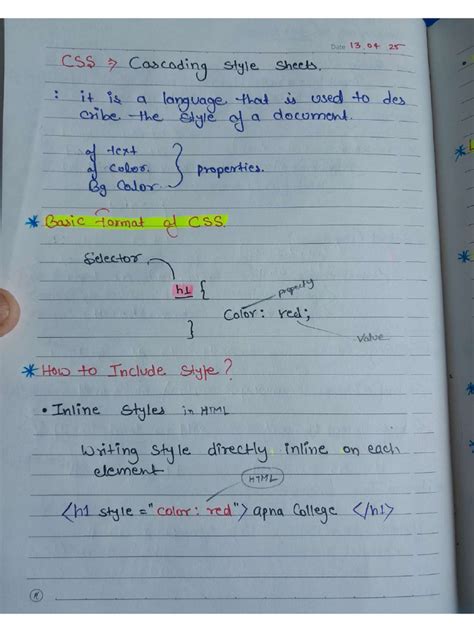 Date 13 04 25
CSS ⇒ Cascading Style Sheets.
: it is a language that is used to des
cribe the style of a document.
of text
of color.
Bg Color.
properties.
* Basic format of CSS.
Selector
h1 {
property
Color: red;
}
value
* How to Include Style?
• Inline Styles in HTML
Writing style directly inline on each
element
HTML
<h1 style = "color: red"> apna College </h1>